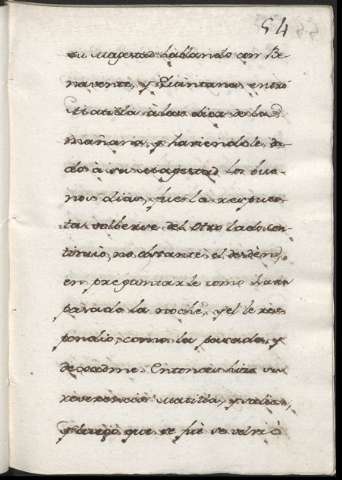 54
su Magestad hablando con Be
navente, y Quintana, entró
Matilla à las diez de la
mañana, y haviendole da
do à su Magestad los bue
nos dias, fue la respues
ta volberse del otro lado con
tinuò, no obstante el desden,
en preguntarle como havia
pasado la noche, y el le res
pondio, como la pasada, y
dexadme. Entonces hizo su
reverencia Matilla, y
luego que se fue se volviò